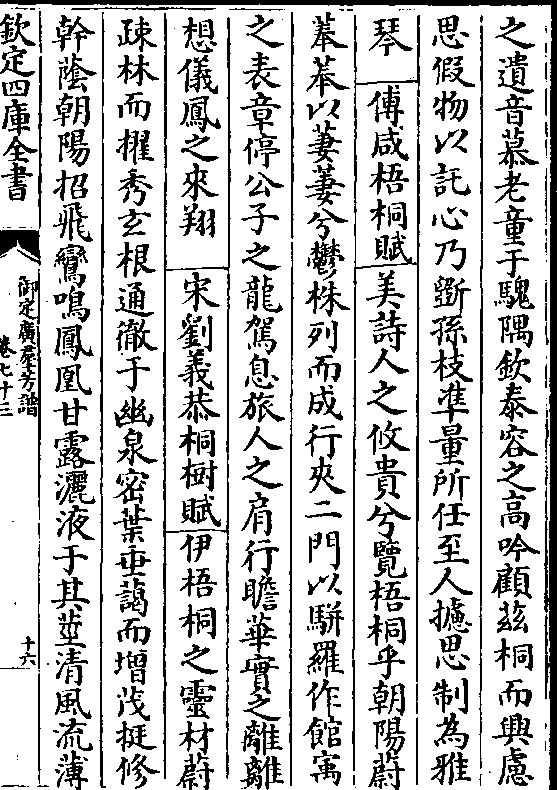 之遺音慕老童于騩隅欽泰容之高吟顧茲桐而興慮
思假物以託心乃斲孫枝凖量所任至人攄思制為雅
琴　傅咸梧桐賦　美詩人之攸貴兮覽梧桐乎朝陽蔚
菶菶以萋萋兮鬱株列而成行夾二門以駢羅作館寓
之表章停公子之龍駕息旅人之肩行瞻華實之離離
想儀鳳之來翔　宋劉義恭桐樹賦　伊梧桐之靈材蔚
疎林而擢秀玄根通徹于幽泉密葉垂藹而增茂挺修
幹蔭朝陽招飛鸞鳴鳳凰甘露灑液于其莖清風流薄
欽定四庫全書
御定廣羣芳譜
卷七十三
十六